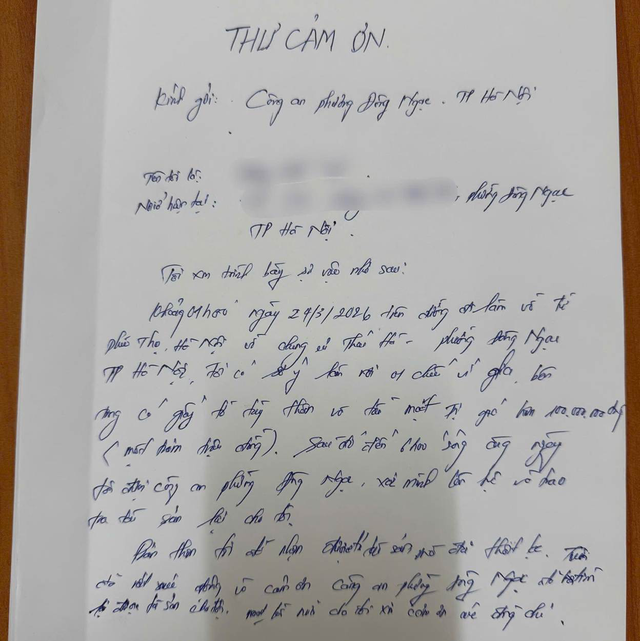 THƯ CẢM ƠN.
Kính gửi: Công an phường Đông Ngạc. TP Hà Nội
Tên tôi là:
Nơi ở hiện tại: , phường Đông Ngạc
TP Hà Nội.
Tôi xin trình bày sự việc như sau:
Khoảng 01h00' ngày 24/3/2026 trên đường đi làm về từ
phúc Thọ, Hà Nội về chung cư Thái Hà - phường Đông Ngạc
TP Hà Nội, tôi có sơ ý làm rơi 01 chiếc ví giả da, bên
trong có giấy tờ tùy thân và tiền mặt trị giá hơn 100.000.000 đồng
( một trăm triệu đồng). Sau đó đến 6h00 sáng cùng ngày
tôi được công an phường Đông Ngạc, xác minh liên hệ và trao
trả tài sản lại cho tôi.
Bản thân tôi đã nhận được tài sản mà đã thất lạc. Tôi
rất xúc động và cảm ơn Công an phường Đông Ngạc đã
tài sản cho tôi, một lần nữa cho tôi xin cảm ơn các đồng chí.